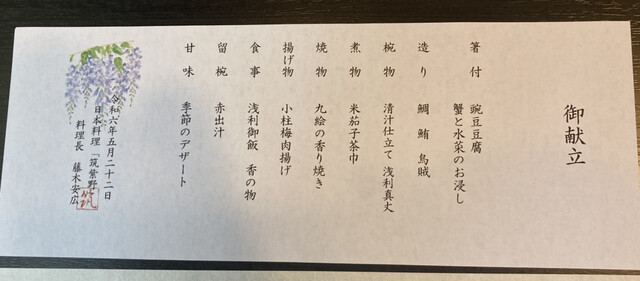 御献立
箸付　豌豆豆腐
蟹と水菜のお浸し
造り　鯛　鮪　烏賊
椀物　清汁仕立て　浅利真丈
煮物　米茄子茶巾
焼物　九絵の香り焼き
揚げ物　小柱梅肉揚げ
食事　浅利御飯　香の物
留椀　赤出汁
甘味　季節のデザート
令和六年五月二十二日
日本料理「筑紫野」
料理長　藤木安広